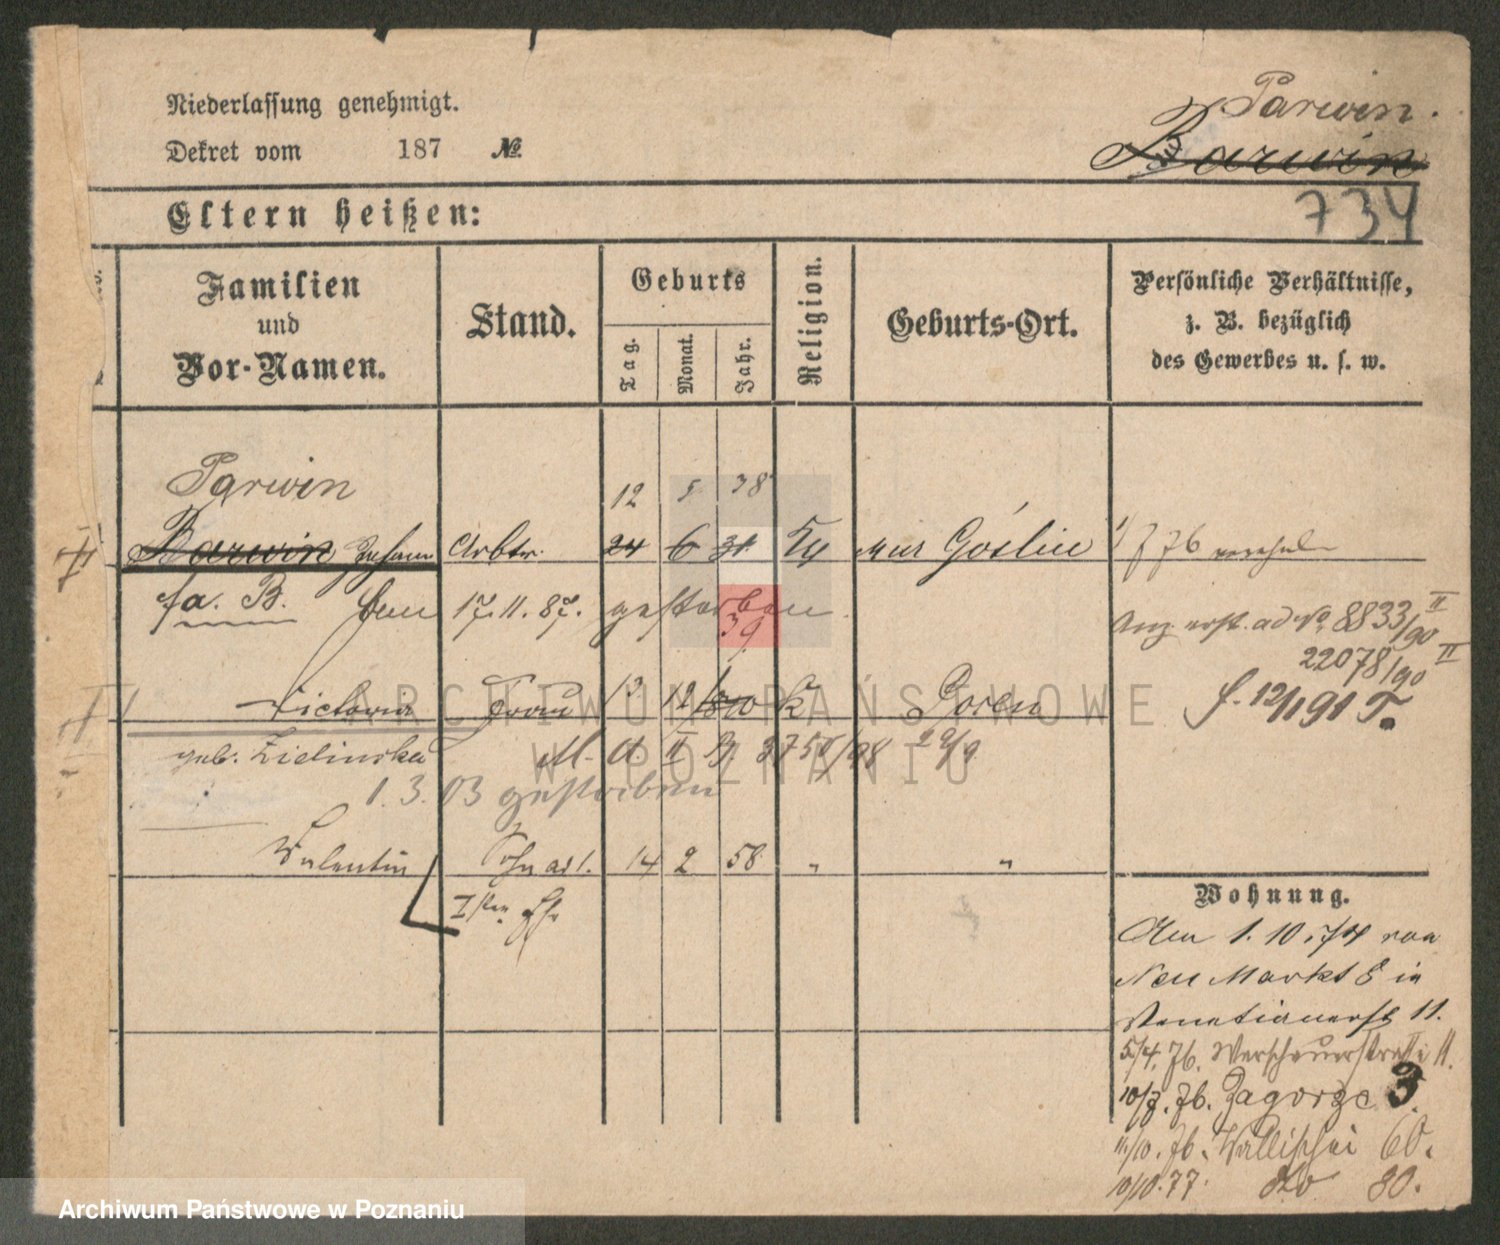 Niederlassung genehmigt.
Parwin.
Dekret vom 187 №.
Barwin
Eltern heißen:
734
Familien
und
Vor-Namen.
Stand.
Geburts
Tag.
Monat.
Jahr.
Religion.
Geburts-Ort.
Persönliche Verhältnisse,
z. B. bezüglich
des Gewerbes u. s. w.
Parwin
12 5 38
II Barwin Johann Arbtr. 24 6 31. Mur Goślin
fa. B. 17.11.87. gestorben
39
Anz. erst. ad No. 8833/90 II
22078/90 II
f. 12/1 91 T.
Victoria Frau 13 12 K Posen
geb. Zielinska A. II B. 29/9
1. 3. 03 gestorben
Valentin Sohn ad 1. 14 2 58 " "
I Ehe
ARCHIWUM PAŃSTWOWE
W POZNANIU
Wohnung.
Am 1. 10. 74 von
Neu Markt 8 in
Venetianerst 11.
5/4. 76. 11.
10/7. 76. Zagorze 3.
11/10. 76. Wallischei 60.
10/10. 77. do 80.
Archiwum Państwowe w Poznaniu